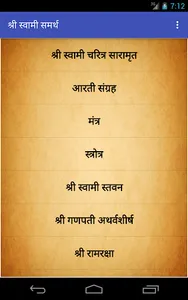 7:12
श्री स्वामी समर्थ
श्री स्वामी चरित्र सारामृत
आरती संग्रह
मंत्र
स्त्रोत्र
श्री स्वामी स्तवन
श्री गणपती अथर्वशीर्ष
श्री रामरक्षा